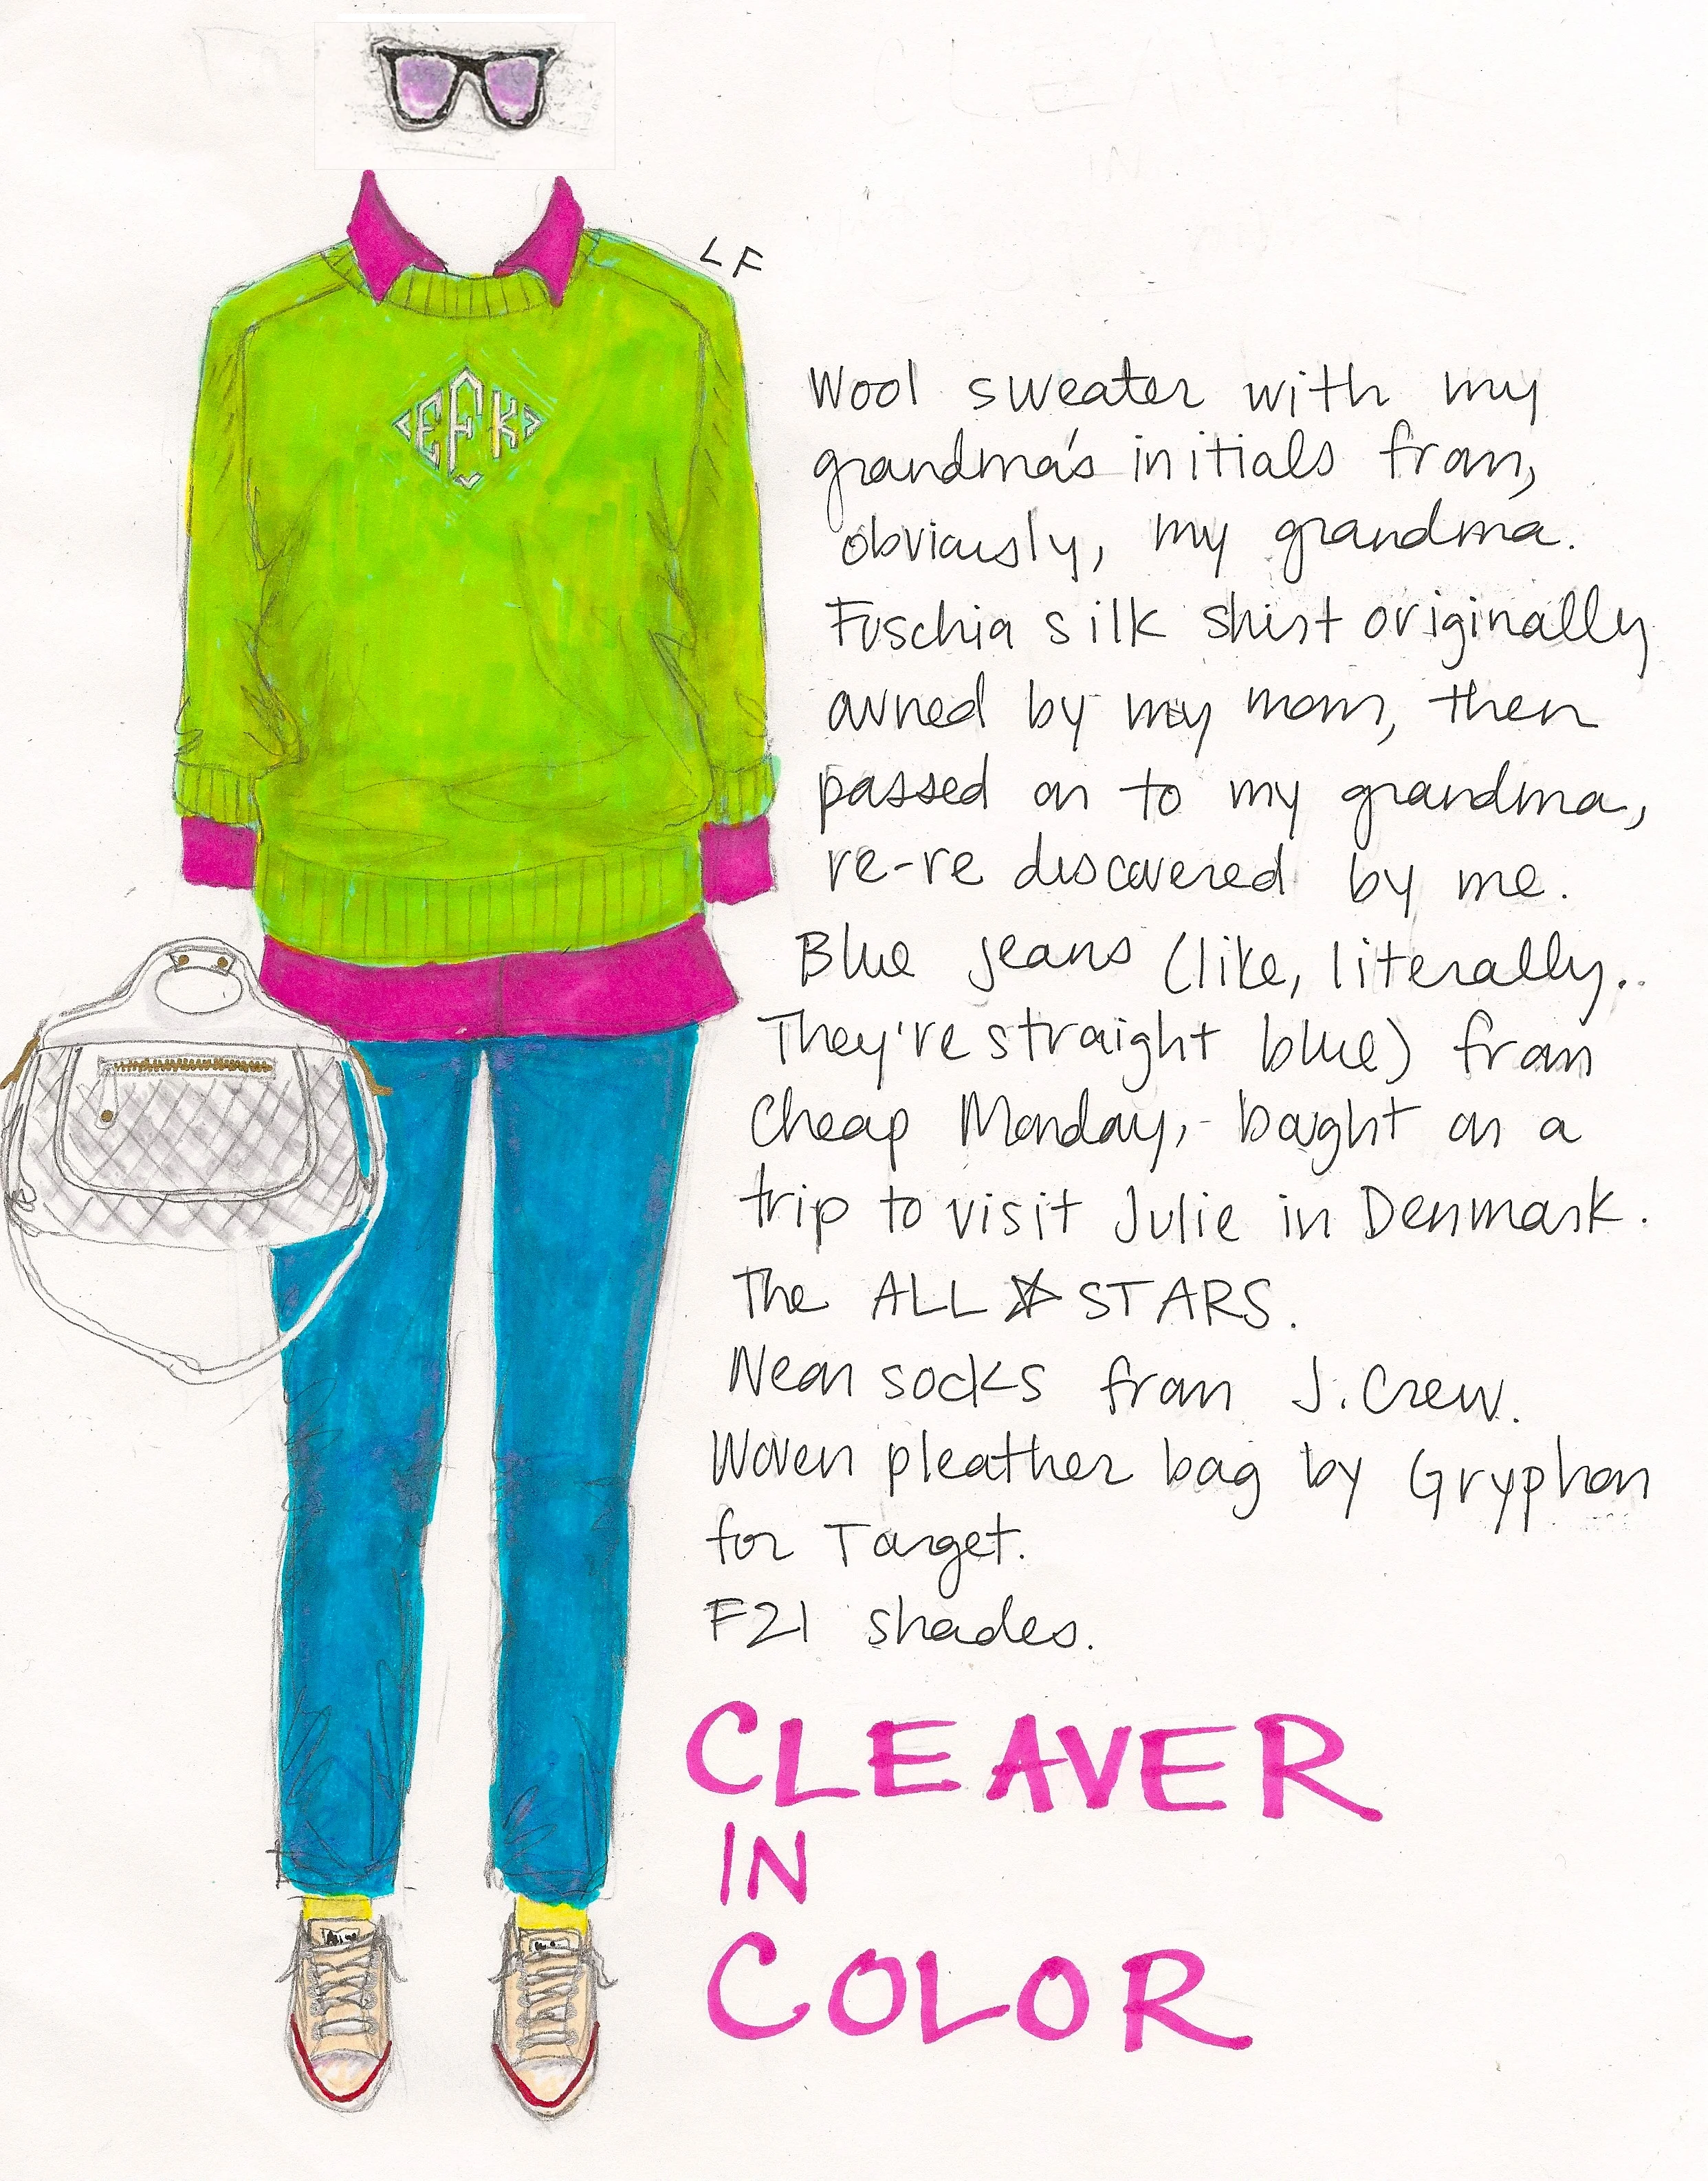 LF
<EFK>
Wool sweater with my
grandma's initials from,
obviously, my grandma.
Fuschia silk shirt originally
owned by my mom, then
passed on to my grandma,
re-re discovered by me.
Blue jeans (like, literally..
They're straight blue) from
Cheap Monday,- bought on a
trip to visit Julie in Denmark.
The ALL ☆ STARS.
Neon socks from J.Crew.
Woven pleather bag by Gryphon
for Target.
F21 shades.
CLEAVER
IN
COLOR